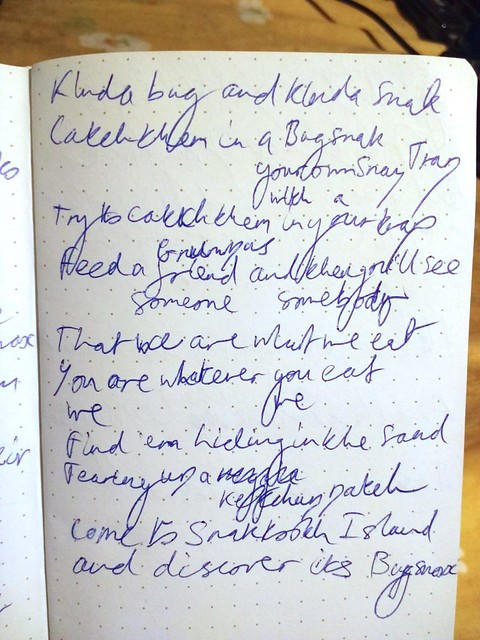 Kinda bug and kinda snak
Catch them in a Bugsnak
your own Snax Trap
with a
Try to catch them in your trap
Grumpus
Feed a friend and then you'll see
someone somebody
That we are what we eat
You are whatever you eat
we we
Find 'em hiding in the sand
Tearing up a
Ketchup patch
Come to Snaktooth Island
and discover its Bugsnax